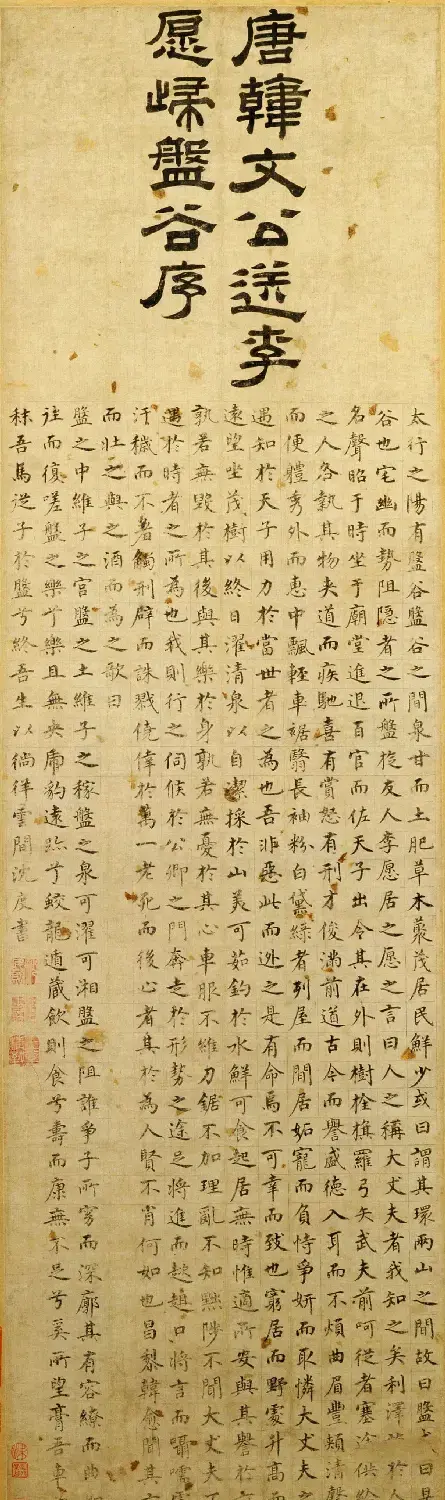 唐韓文公送李
愿歸盤谷序
太行之陽有盤谷盤谷之間泉甘而土肥草木藂茂居民鮮少或曰謂其環兩山之間故曰盤或曰是
谷也宅幽而勢阻隱者之所盤旋友人李愿居之愿之言曰人之稱大丈夫者我知之矣利澤施於人
名聲昭于時坐于廟堂進退百官而佐天子出令其在外則樹栓旗羅弓矢武夫前呵從者塞途供給
之人各執其物夾道而疾馳喜有賞怒有刑才俊滿前道古今而譽盛德入耳而不煩曲眉豐頰清聲
而便體秀外而惠中飄輕車裾翳長袖粉白黛綠者列屋而間居妬寵而負恃爭妍而取憐大丈夫之
遇知於天子用力於當世者之為也吾非惡此而逃之是有命焉不可幸而致也窮居而野處升高而
遠望坐茂樹以終日濯清泉以自潔採於山美可茹釣於水鮮可食起居無時惟適所安與其譽於
孰若無毀於其後與其樂於身孰若無憂於其心車服不維刀鋸不加理亂不知黜陟不聞大丈夫不
遇於時者之所為也我則行之伺候於公卿之門奔走於形勢之途足將進而趑趄口將言而囁嚅
汙穢而不著觸刑辟而誅戮僥倖於萬一老死而後止者其於為人賢不肖何如也昌黎韓愈聞其言
而壯之與之酒而為之歌曰
盤之中維子之宮盤之土維子之稼盤之泉可濯可湘盤之阻誰爭子所窈而深廓其有容繚而曲
往而復嗟盤之樂兮樂且無央虎豹遠跡兮蛟龍遁藏飲則食兮壽而康無不足兮奚所望膏吾車
秣吾馬從子於盤兮終吾生以徜徉雲間沈度書